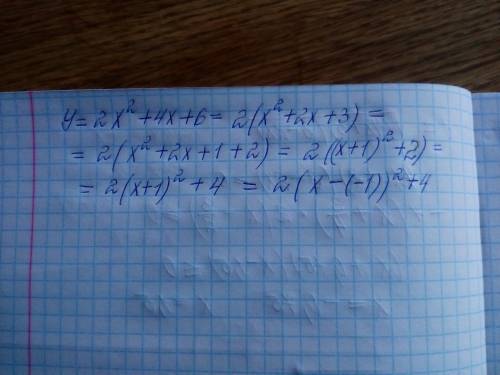 y = 2x² + 4x + 6 = 2(x² + 2x + 3) =
= 2(x² + 2x + 1 + 2) = 2((x+1)² + 2) =
= 2(x+1)² + 4 = 2(x - (-1))² + 4